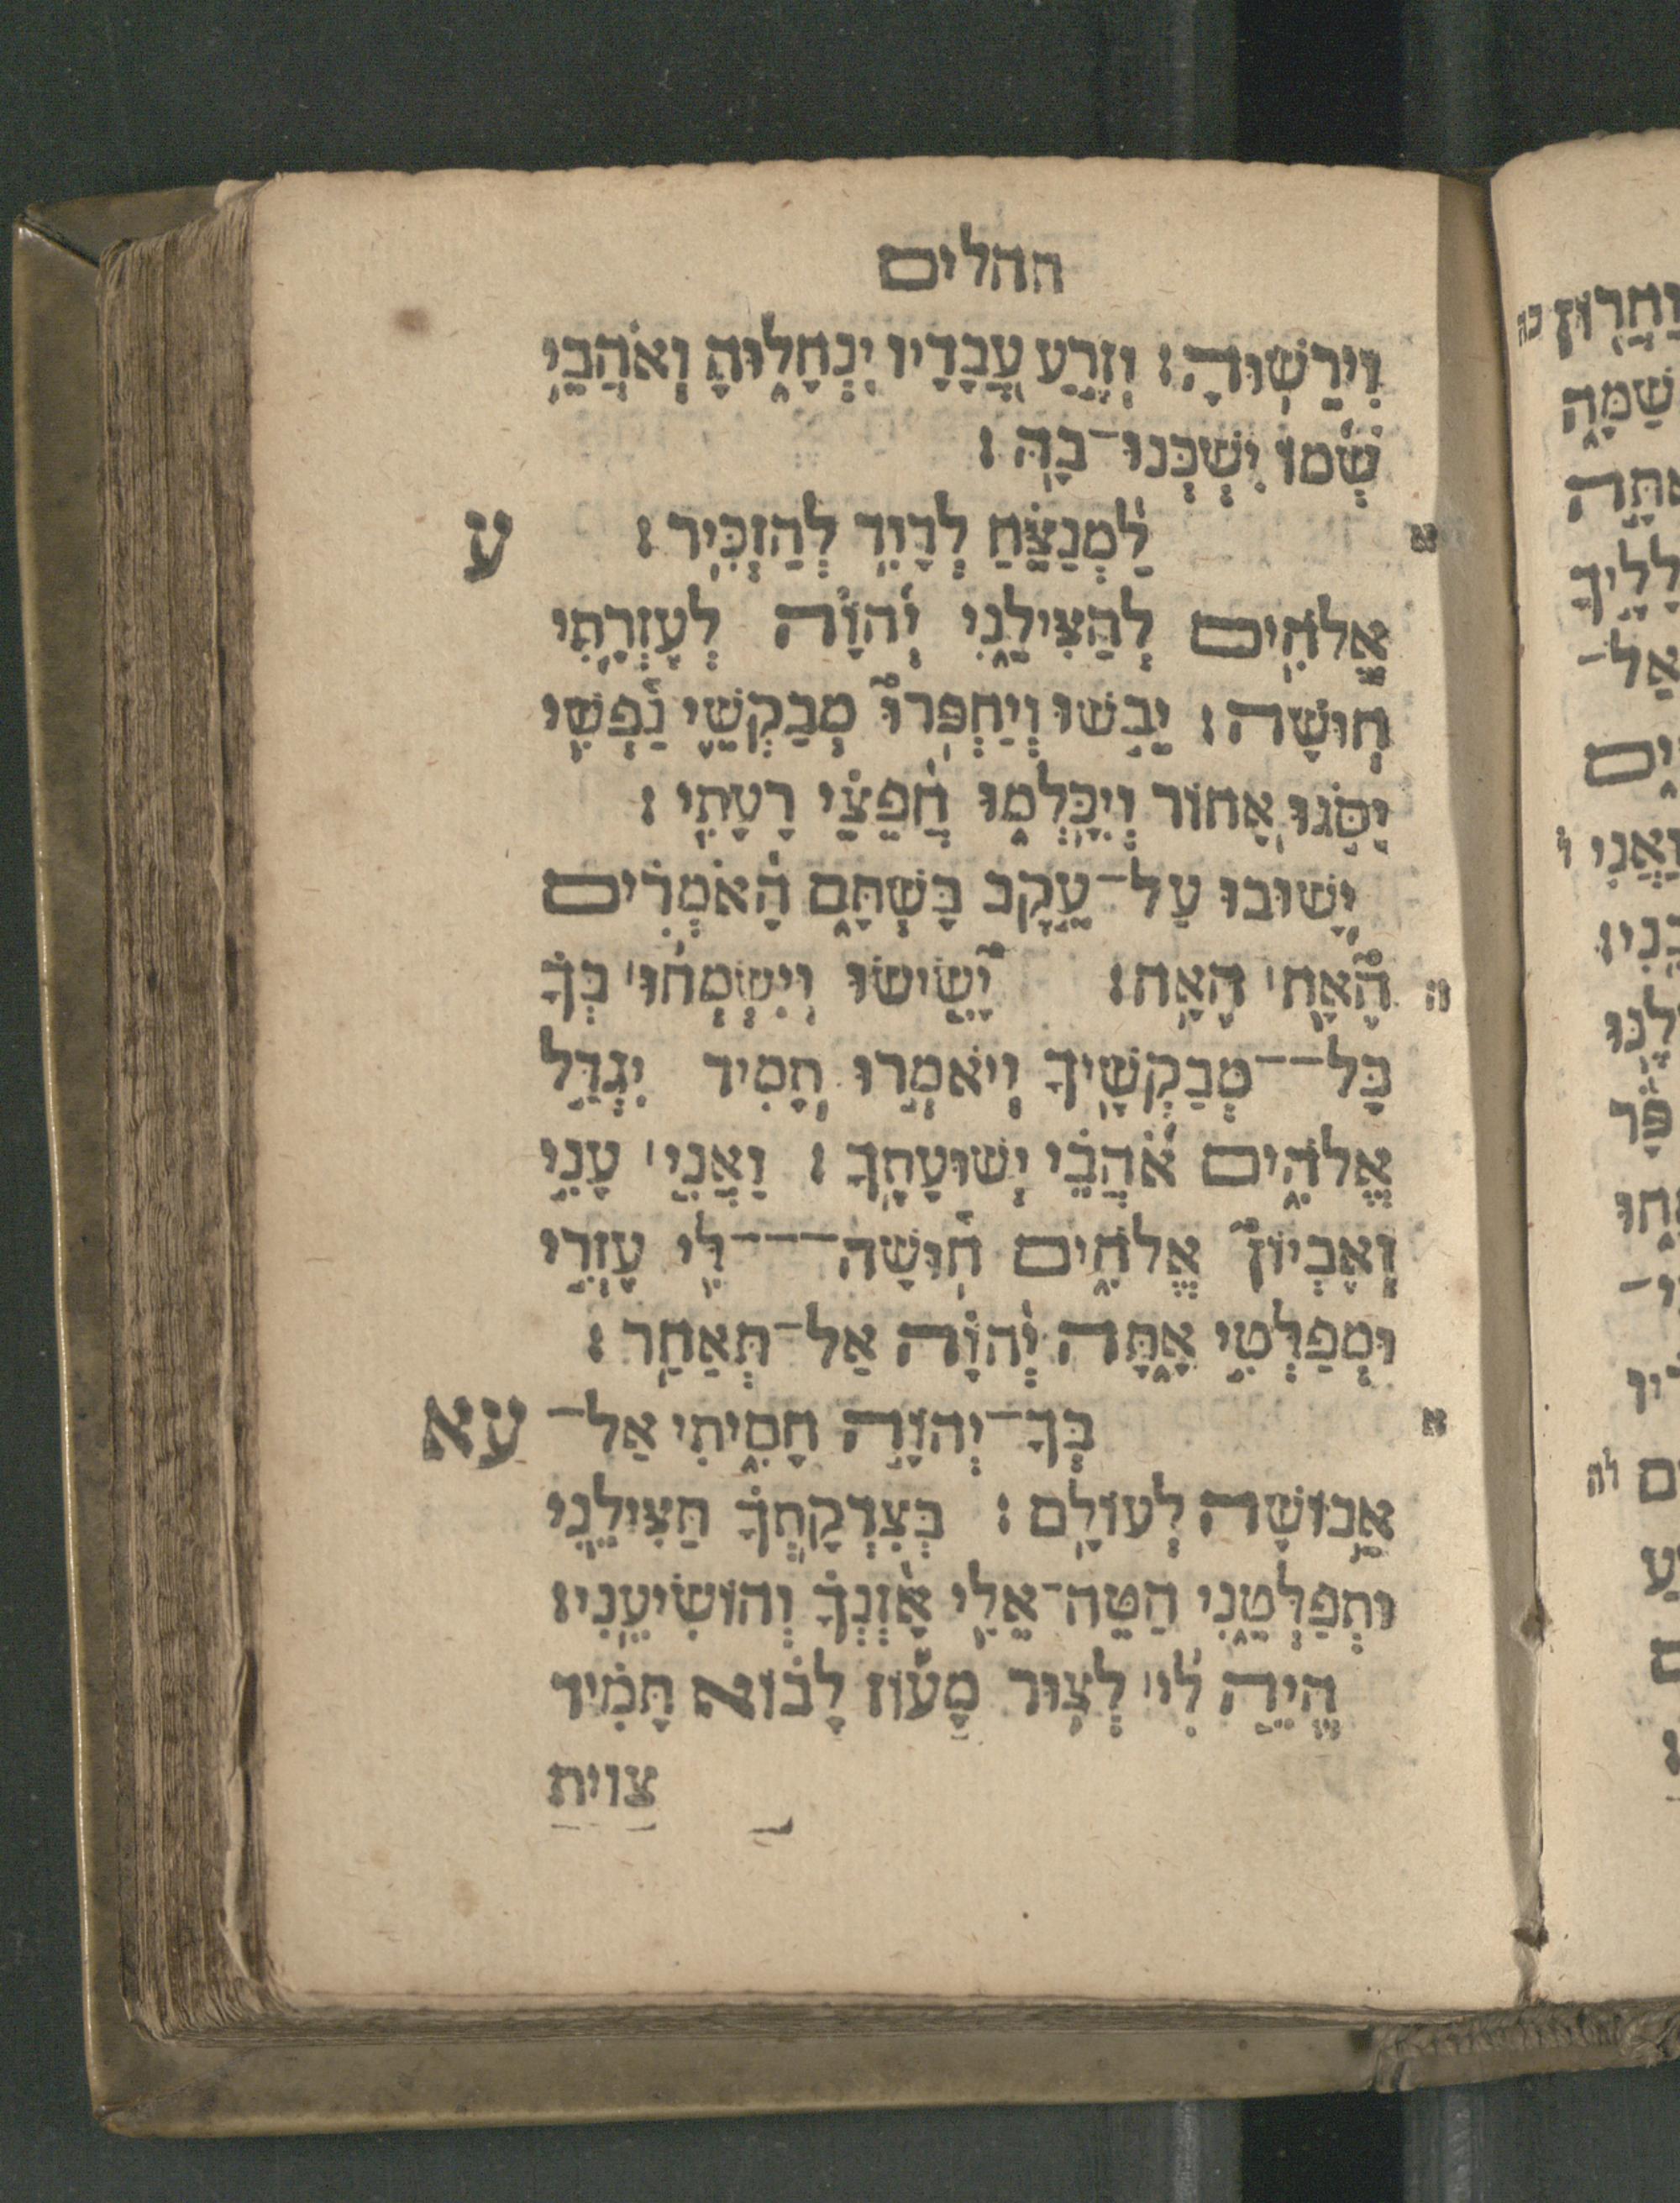 תהלים
וִירֵשׁוּהָ׃ וְזֶרַע עֲבָדָיו יִנְחָלוּהָ וְאֹהֲבֵי
שְׁמוֹ יִשְׁכְּנוּ־בָהּ׃
א לַמְנַצֵּחַ לְדָוִד לְהַזְכִּיר׃ ע
אֱלֹהִים לְהַצִּילֵנִי יְהוָה לְעֶזְרָתִי
חוּשָׁה׃ יֵבֹשׁוּ וְיַחְפְּרוּ מְבַקְשֵׁי נַפְשִׁי
יִסֹּגוּ אָחוֹר וְיִכָּלְמוּ חֲפֵצֵי רָעָתִי׃
יָשׁוּבוּ עַל־עֵקֶב בָּשְׁתָּם הָאֹמְרִים
ה הֶאָח הֶאָח׃ יָשִׂישׂוּ וְיִשְׂמְחוּ בְּךָ
כָּל־־מְבַקְשֶׁיךָ וְיֹאמְרוּ תָמִיד יִגְדַּל
אֱלֹהִים אֹהֲבֵי יְשׁוּעָתֶךָ׃ וַאֲנִי עָנִי
וְאֶבְיוֹן אֱלֹהִים חוּשָׁה־־־לִּי עֶזְרִי
וּמְפַלְטִי אַתָּה יְהוָה אַל־תְּאַחַר׃
א בְּךָ־יְהוָה חָסִיתִי אַל־ עא
אֵבוֹשָׁה לְעוֹלָם׃ בְּצִדְקָתְךָ תַּצִּילֵנִי
וּתְפַלְּטֵנִי הַטֵּה־אֵלַי אָזְנְךָ וְהוֹשִׁיעֵנִי׃
הֱיֵה לִי לְצוּר מָעוֹן לָבוֹא תָּמִיד
צוית